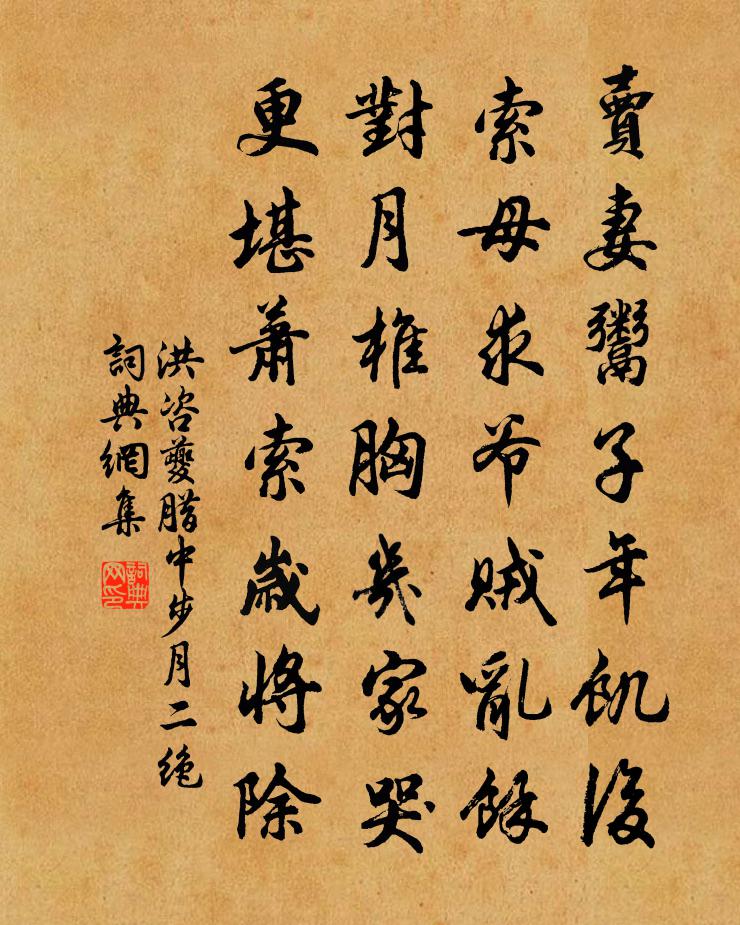 賣妻鬻子年飢後
索母求爷賊亂餘
對月椎胸幾家哭
更堪蕭索歲將除
洪咨夔腊中步月二絶
詞典網集
詞典网印